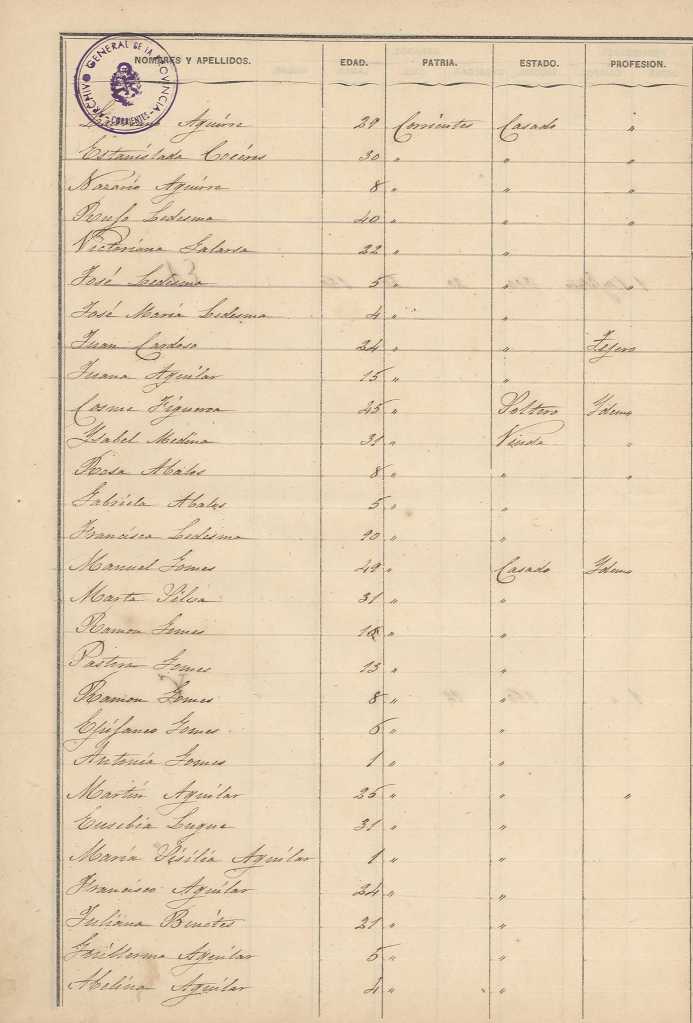 ARCHIVO GENERAL DE LA PROVINCIA - CORRIENTES -
NOMBRES Y APELLIDOS. EDAD. PATRIA. ESTADO. PROFESION.
Aguirre 29 Corrientes Casado "
Estanislada Coceres 30 " " "
Nazario Aguirre 8 " " "
Rufo Ledesma 40 " " "
Victoriana Galarsa 22 " "
José Ledesma 5 " " "
José Maria Ledesma 4 " "
Juan Cardoso 24 " "
Juana Aguilar 15 " "
Cosme Figueroa 45 " Soltero Ydem
Ysabel Medina 31 " Viuda "
Rosa Abales 8 " " "
Gabriela Abales 5 " "
Francisca Ledesma 90 " "
Manuel Gomes 49 " Casado Ydem
Marta Silva 31 " "
Ramon Gomes " "
Pastora Gomes 13 " "
Ramon Gomes 8 " "
Epifanio Gomes 6 " "
Antonia Gomes 1 " "
Martin Aguilar 25 " " "
Eusebia Luque 31 " "
Maria Sisilia Aguilar 1 " "
Francisco Aguilar 24 " "
Juliana Benites 21 " "
Guillermo Aguilar 5 " "
Abelina Aguilar 4 " "